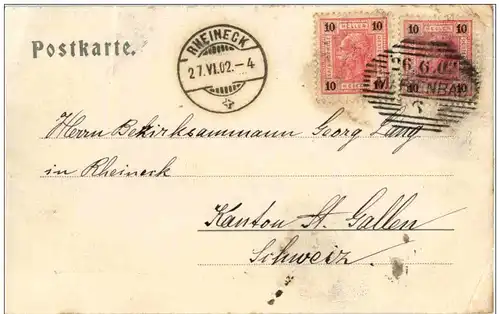 Postkarte.
RHEINECK
27.VI.02.-4
10 HELLER 10
10 10
10 10
10 10
26 6.02
Herrn Bezirksammann Georg Lutz
in Rheineck
Kanton St. Gallen
Schweiz.